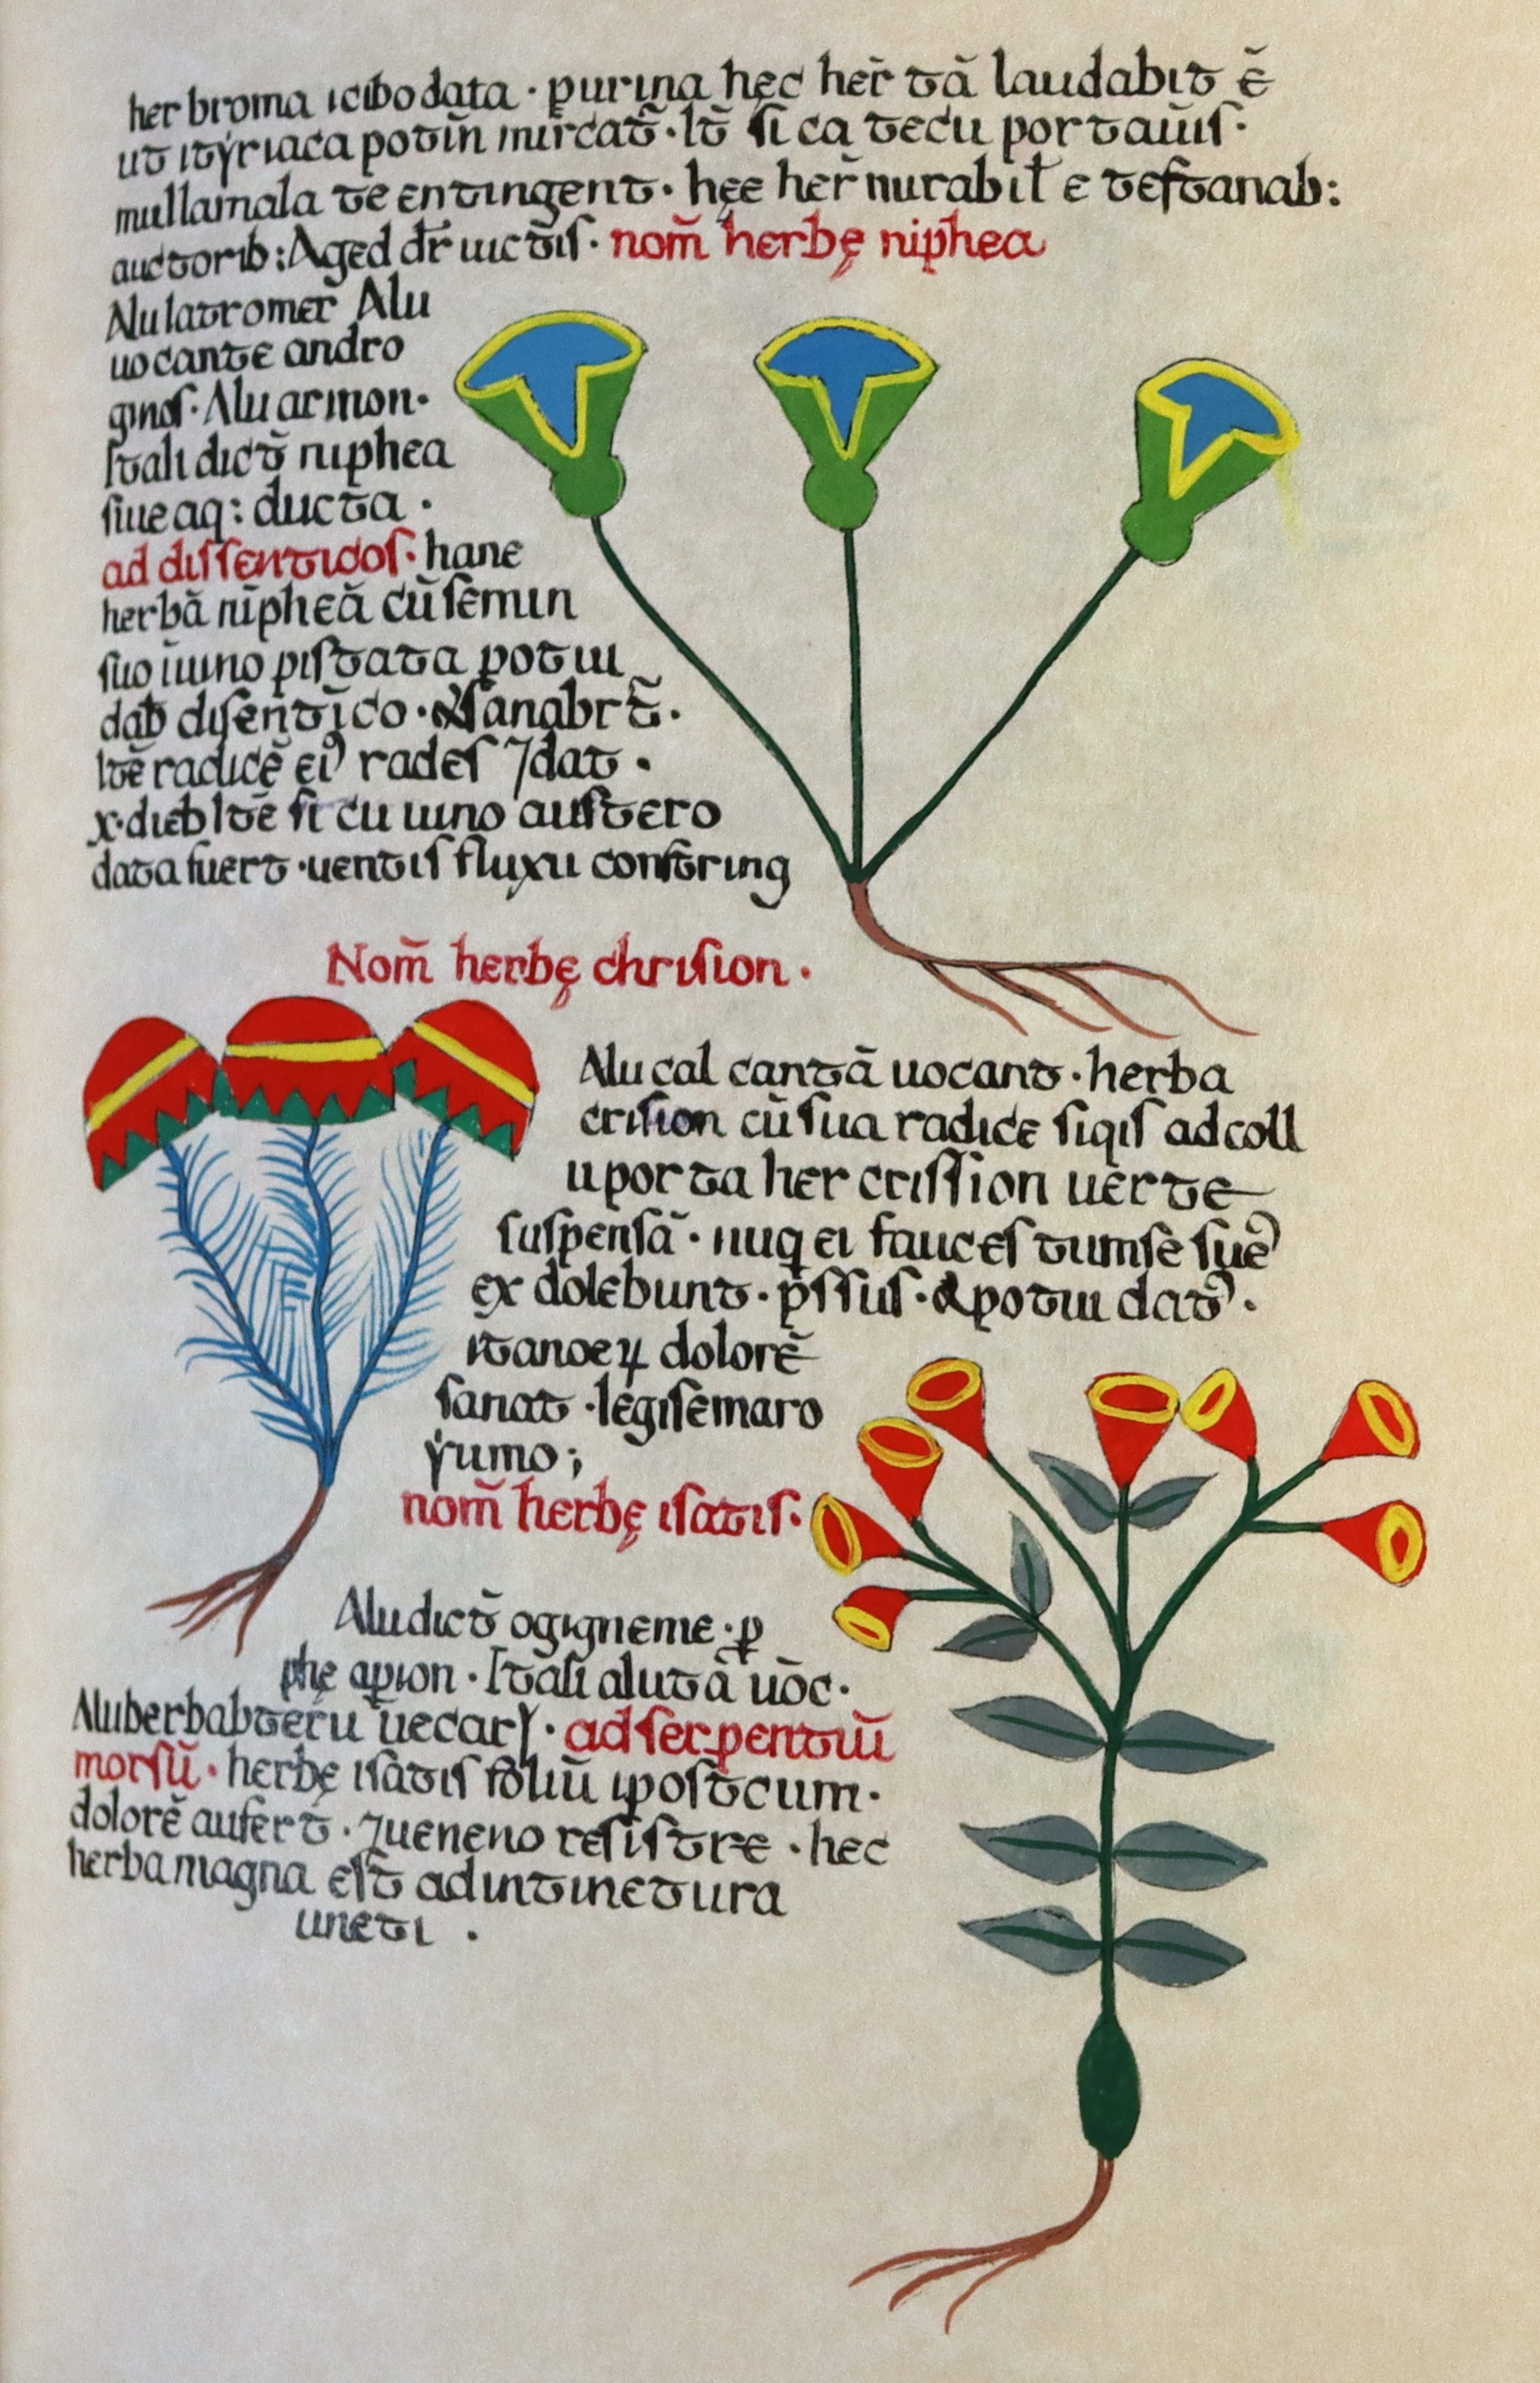 herbroma icibodata · purina hęc her̄ tā laudabit ē
ut ityriaca potin̄ mircat̄ · lt̄ si ca tecu portauīs ·
mullamala te entingent · hęe her̄ nurabil̄ e testanab:
auctorib: Aged dr̄ uictis · nom̄ herbę niphea
Alulatromer̄ Alu
uocante andro
ginos · Alu armon ·
Itali dict̄ niphea
siue aq: ducta ·
ad dissentidos · hane
herbā niphēā cū semin
suo iuino pistata potui
dab̄ disentico · & sanabrt̄ ·
ltē radicē ei rades ⁊dat ·
x·dieb ltē si cu uino austero
data fuert · uentis fluxu constring
Nom̄ herbę chrision ·
Alu cal cantā uocant · herba
crision cū sua radice siqis ad coll
uporta her crission uerte
suspensā · nuq ei fauces tumse sue
ex dolebunt · pssus · & potui dat ·
itanoeꝝ dolorē
sanat · legisemaro
yumo ;
nom̄ herbę isatis ·
Aludict̄ ogigneme · p
phe apion · Itali alutā uōc ·
Aluberbabteru uecar · ad serpentiū
morsū · herbę isatis foliū ipostcum ·
dolorē aufert̄ · ⁊ueneno resistre · hec
herba magna est̄ adintinetura
uneti ·